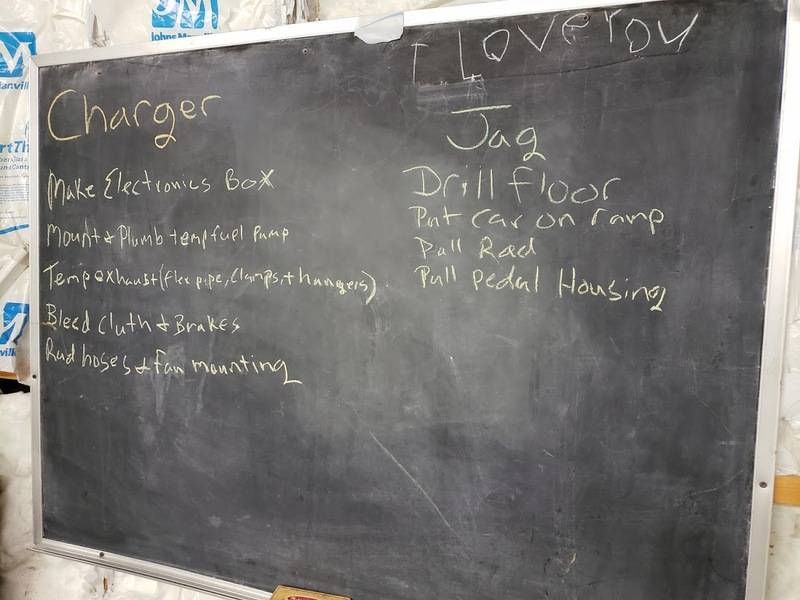 I Love You
Charger
Make Electronics Box
Mount & Plumb temp fuel Pump
Temp exhaust (flex pipe, Clamps, + hangers)
Bleed Cluth & Brakes
Rad hoses & fan mounting
Jag
Drill floor
Put car on ramp
Pull Rad
Pull pedal Housing
JM
Johns Man